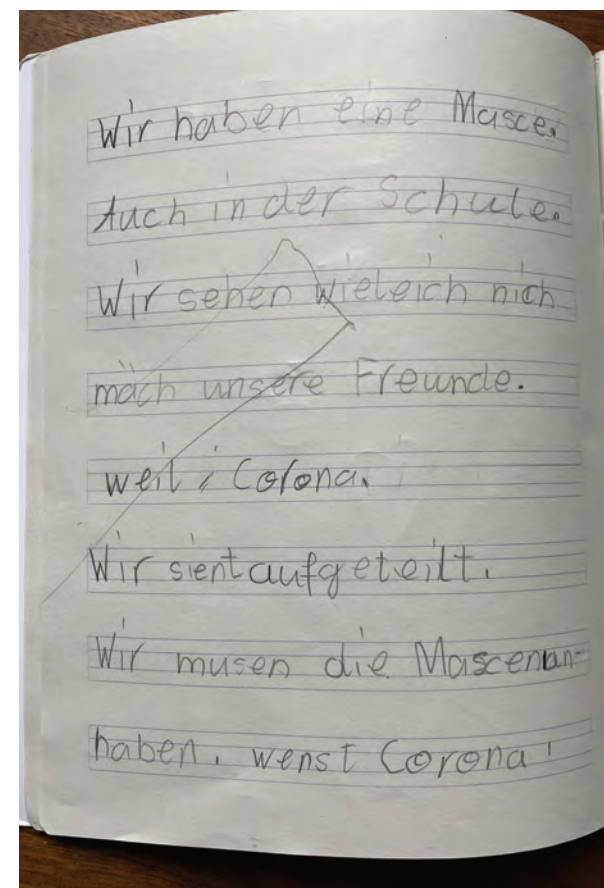 Wir haben eine Masce.
Auch in der Schule.
Wir sehen wieleich nich
mäch unsere Freunde.
weil, Corona.
Wir sient aufgeteilt.
Wir musen die Mascenan-
haben, wenst Corona!